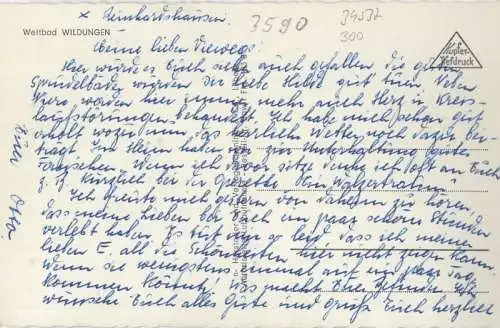 x Reinhardshausen.
3590
34537
300
Weltbad WILDUNGEN
Kupfer-
tiefdruck
Meine lieben Vierwegs!
Hier würde es Euch sehr auch gefallen die guten
Sprudelbäder würden der liebe Hilde gut tuen. Neben
Niere werden hier immer mehr auch Herz u. Kreis-
laufstörungen behandelt. Ich habe mich schon gut
erholt wozu nun das herrliche Wetter noch dazu bei-
trägt. Im Heim haben wir zur Unterhaltung gutes
Fernsehen. Wenn ich davor sitze denke ich oft an Euch
z. B. kürzlich bei der Operette Ein Walzertraum.
Ich freute mich gestern von daheim zu hören,
dass meine Lieben bei Euch ein paar schöne Stunden
verlebt haben. Es tut mir so leid, dass ich meiner
lieben E. all die Schönheiten hier nicht zeigen kann,
wenn sie wenigstens einmal auf ein paar Tage
kommen könnte. Was macht Euer Befinden? Ich
wünsche Euch alles Gute und grüße Euch herzlich
Euer Otto